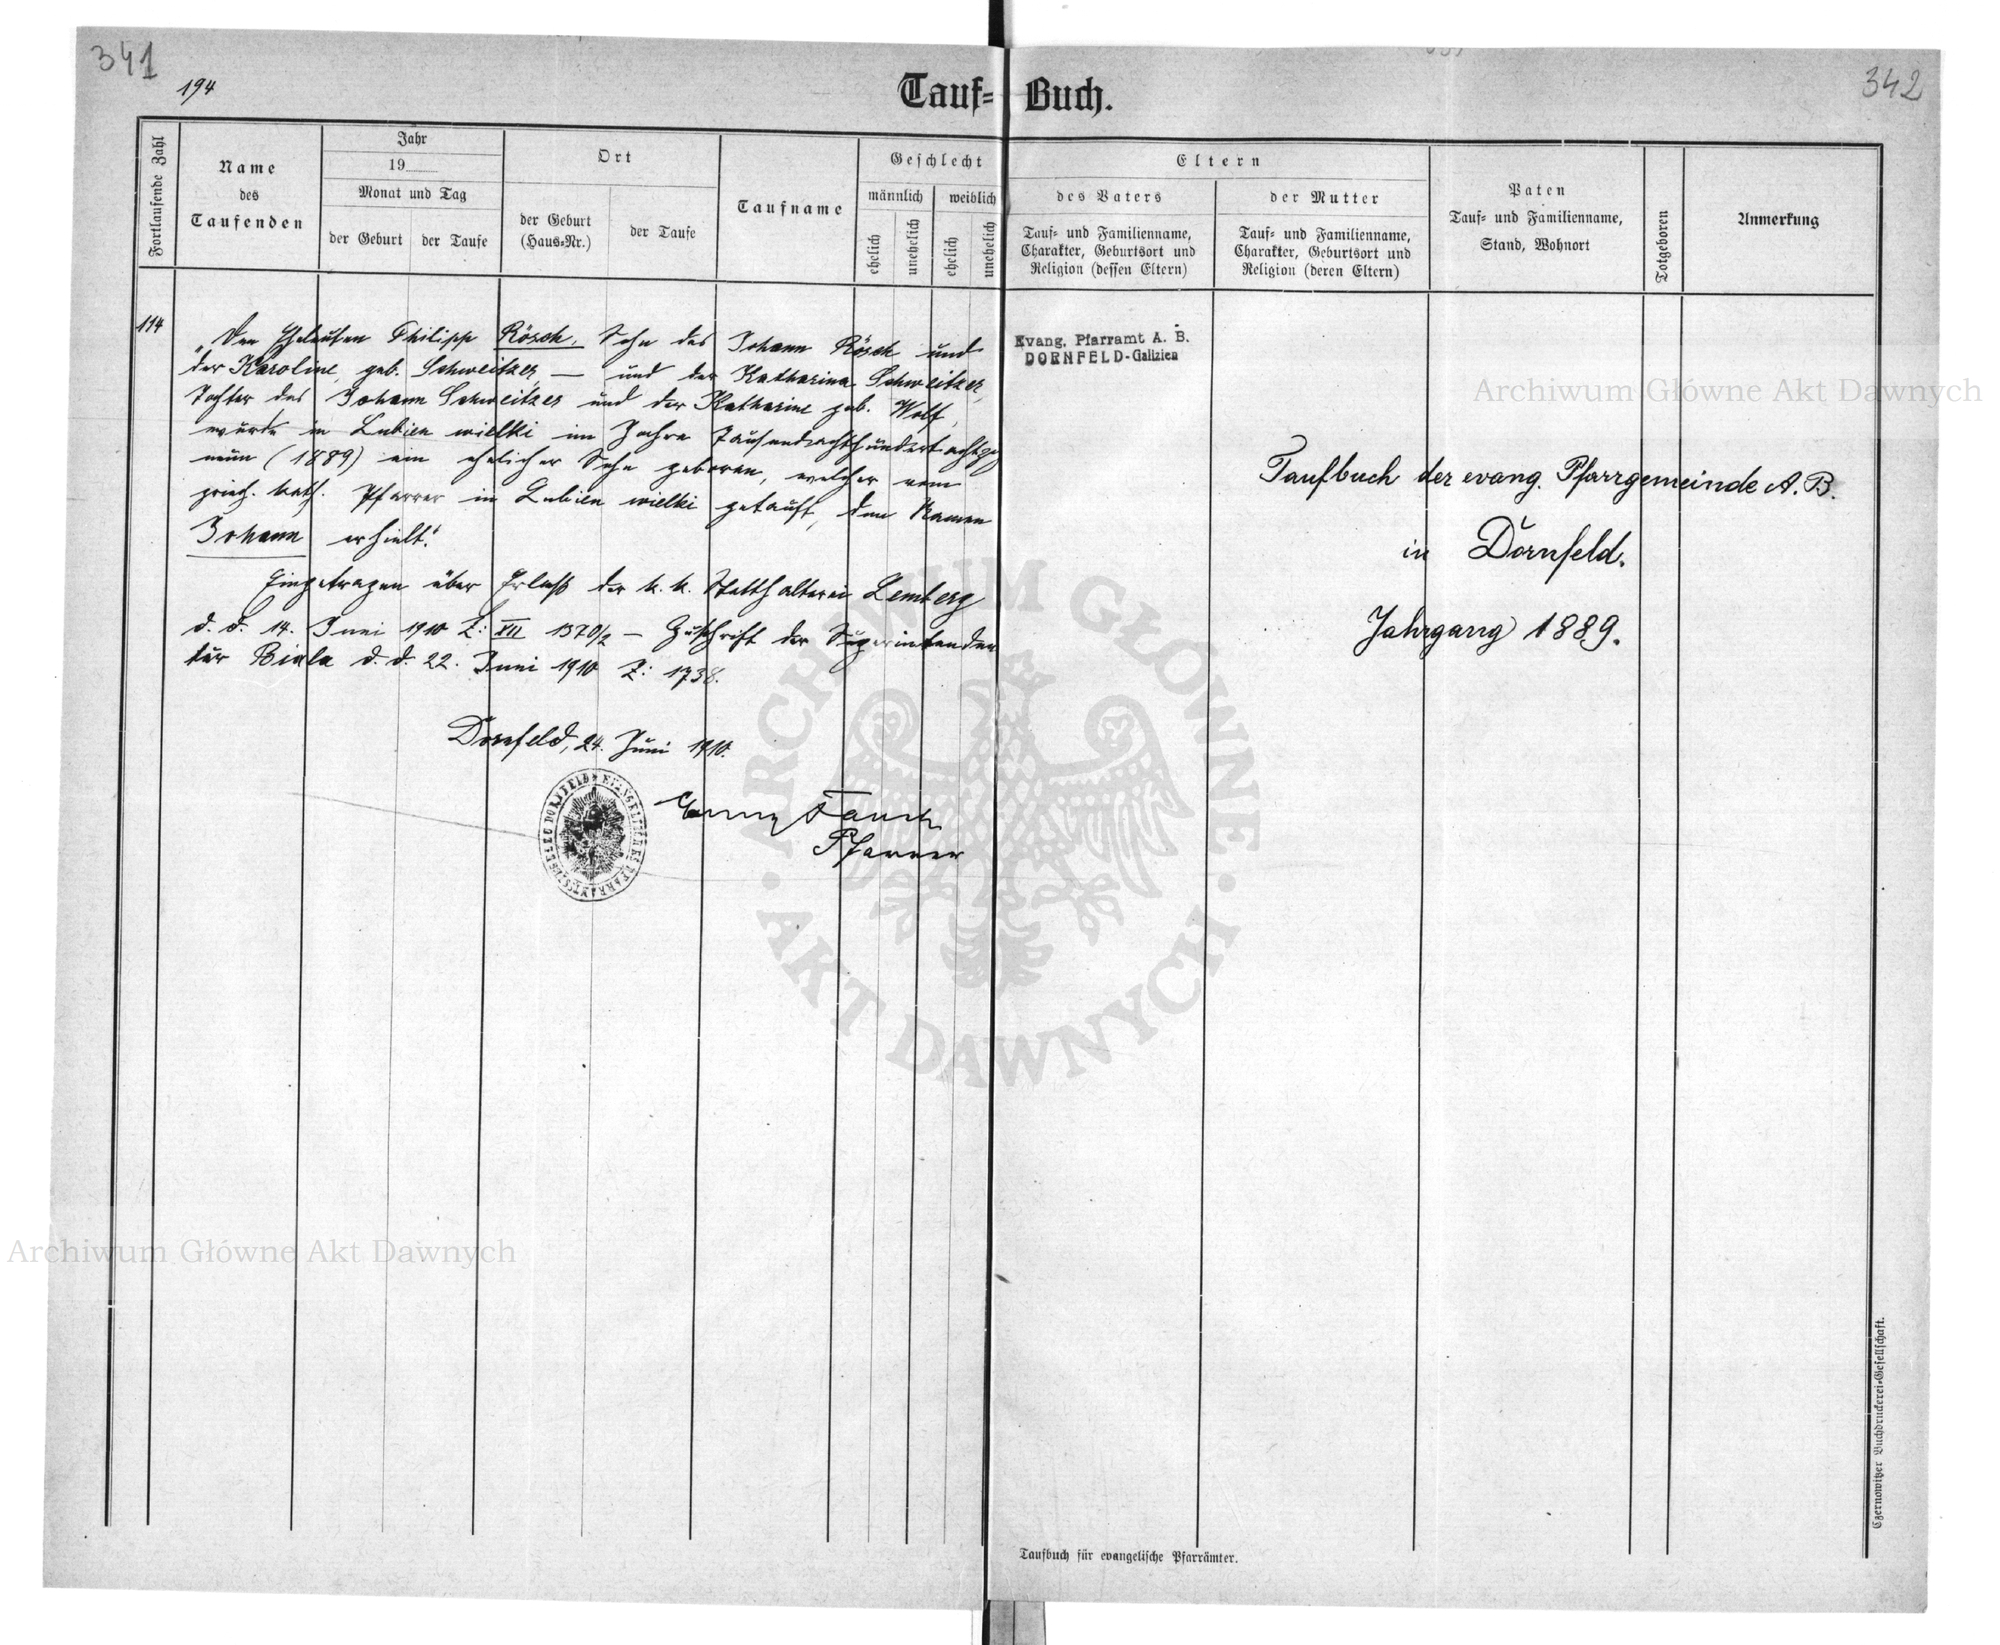 341
194
Tauf-Buch.
342
Fortlaufende Zahl
Name
des
Taufenden
Jahr
19
Monat und Tag
der Geburt
der Taufe
Ort
der Geburt
(Haus-Nr.)
der Taufe
Taufname
Geschlecht
männlich
weiblich
ehelich
unehelich
ehelich
unehelich
Eltern
des Vaters
Tauf- und Familienname,
Charakter, Geburtsort und
Religion (dessen Eltern)
der Mutter
Tauf- und Familienname,
Charakter, Geburtsort und
Religion (deren Eltern)
Paten
Tauf- und Familienname,
Stand, Wohnort
Totgeboren
Anmerkung
114
„Den Eheleuten Philipp Rösch, Sohn des Johann Rösch und
der Karoline, geb. Schweitzer, — und der Katharina Schweitzer,
Tochter des Johann Schweitzer und der Katharine geb. Wolf,
wurde in Lubien wielki im Jahre Tausendachthundertachtzig
neun (1889) ein ehelicher Sohn geboren, welcher vom
griech. kath. Pfarrer in Lubien wielki getauft, den Namen
Johann erhielt."
Eingetragen über Erlaß der k. k. Statthalterei Lemberg
d. d. 14. Juni 1910 Z: XII 1370/2 — Zuschrift der Superintenden
tur Biala d. d. 22. Juni 1910 Z: 1738.
Dornfeld, 24. Juni 1910.
Pfarrer
Evang. Pfarramt A. B.
DORNFELD-Galizien
Taufbuch der evang. Pfarrgemeinde A. B.
in Dornfeld.
Jahrgang 1889.
Archiwum Główne Akt Dawnych
ARCHIWUM GŁÓWNE
· AKT DAWNYCH ·
Archiwum Główne Akt Dawnych
Taufbuch für evangelische Pfarrämter.
Czernowitzer Buchdruckerei-Gesellschaft.